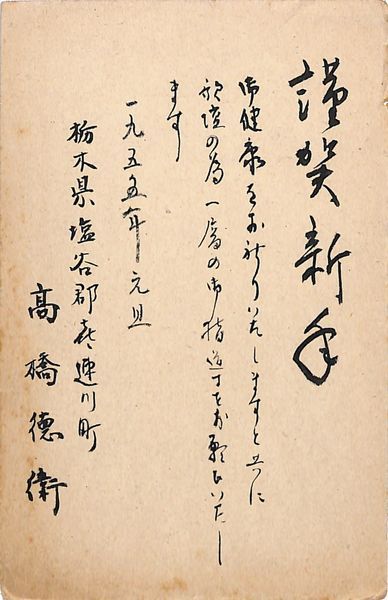 謹賀新年
御健康をお祈りいたしますと共に
の為一層の御指導をお願いいたし
ます
一九五五年元旦
栃木県塩谷郡喜連川町
高橋徳衛